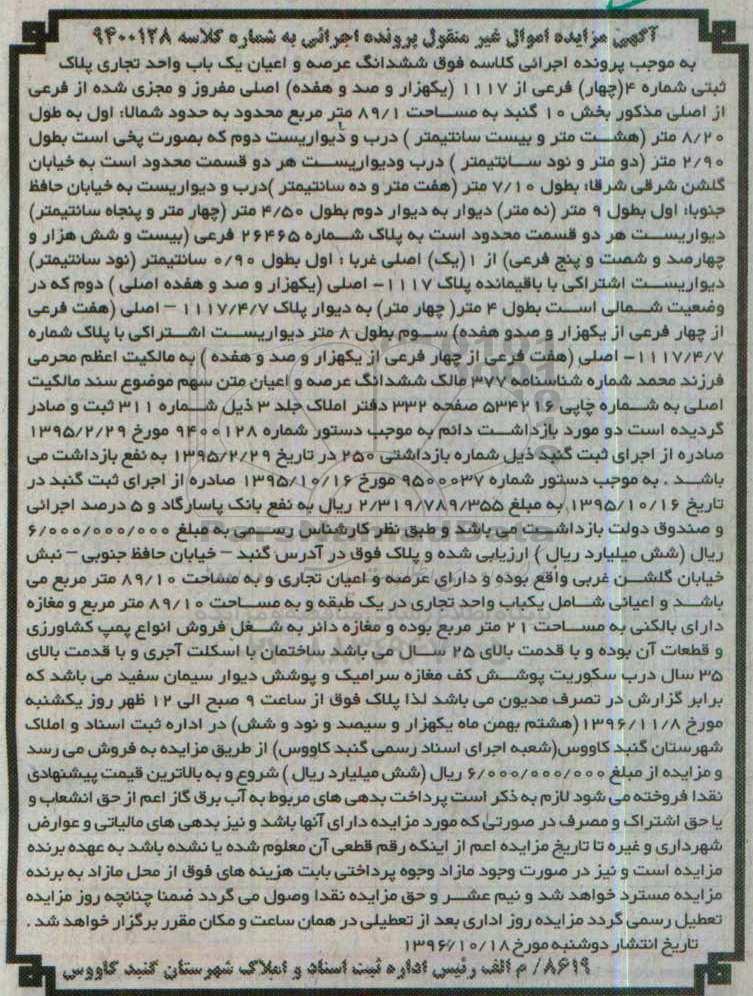 آگهی مزایده اموال غیر منقول پرونده اجرائی به شماره کلاسه ۹۴۰۰۱۲۸
به موجب پرونده اجرائی کلاسه فوق ششدانگ عرصه و اعیان یک باب واحد تجاری پلاک
ثبتی شماره ۴(چهار) فرعی از ۱۱۱۷ (یکهزار و صد و هفده) اصلی مفروز و مجزی شده از فرعی
از اصلی مذکور بخش ۱۰ گنبد به مساحت ۸۹/۱ متر مربع محدود به حدود شمالا: اول به طول
۸/۲۰ متر (هشت متر و بیست سانتیمتر ) درب و دیواریست دوم که بصورت پخی است بطول
۲/۹۰ متر (دو متر و نود سانتیمتر ) درب ودیواریست هر دو قسمت محدود است به خیابان
گلشن شرقی شرقا: بطول ۷/۱۰ متر (هفت متر و ده سانتیمتر )درب و دیواریست به خیابان حافظ
جنوبا: اول بطول ۹ متر (نه متر) دیوار به دیوار دوم بطول ۴/۵۰ متر (چهار متر و پنجاه سانتیمتر)
دیواریست هر دو قسمت محدود است به پلاک شماره ۲۶۴۶۵ فرعی (بیست و شش هزار و
چهارصد و شصت و پنج فرعی) از ۱(یک) اصلی غربا : اول بطول ۰/۹۰ سانتیمتر (نود سانتیمتر)
دیواریست اشتراکی با باقیمانده پلاک ۱۱۱۷- اصلی (یکهزار و صد و هفده اصلی ) دوم که در
وضعیت شمالی است بطول ۴ متر( چهار متر) به دیوار پلاک ۱۱۱۷/۴/۷ – اصلی (هفت فرعی
از چهار فرعی از یکهزار و صدو هفده) سوم بطول ۸ متر دیواریست اشتراکی با پلاک شماره
۱۱۱۷/۴/۷- اصلی (هفت فرعی از چهار فرعی از یکهزار و صد و هفده ) به مالکیت اعظم محرمی
فرزند محمد شماره شناسنامه ۳۷۷ مالک ششدانگ عرصه و اعیان متن سهم موضوع سند مالکیت
اصلی به شماره چاپی ۵۳۴۲۱۶ صفحه ۳۳۲ دفتر املاک جلد ۳ ذیل شماره ۳۱۱ ثبت و صادر
گردیده است دو مورد بازداشت دائم به موجب دستور شماره ۹۴۰۰۱۲۸ مورخ ۱۳۹۵/۲/۲۹
صادره از اجرای ثبت گنبد ذیل شماره بازداشتی ۲۵۰ در تاریخ ۱۳۹۵/۲/۲۹ به نفع بازداشت می
باشد . به موجب دستور شماره ۹۵۰۰۰۳۷ مورخ ۱۳۹۵/۱۰/۱۶ صادره از اجرای ثبت گنبد در
تاریخ ۱۳۹۵/۱۰/۱۶ به مبلغ ۲/۳۱۹/۷۸۹/۳۵۵ ریال به نفع بانک پاسارگاد و ۵ درصد اجرائی
و صندوق دولت بازداشت می باشد و طبق نظر کارشناس رسمی به مبلغ ۶/۰۰۰/۰۰۰/۰۰۰
ریال (شش میلیارد ریال ) ارزیابی شده و پلاک فوق در آدرس گنبد – خیابان حافظ جنوبی – نبش
خیابان گلشن غربی واقع بوده و دارای عرصه و اعیان تجاری و به مساحت ۸۹/۱۰ متر مربع می
باشد و اعیانی شامل یکباب واحد تجاری در یک طبقه و به مساحت ۸۹/۱۰ متر مربع و مغازه
دارای بالکنی به مساحت ۲۱ متر مربع بوده و مغازه دائر به شغل فروش انواع پمپ کشاورزی
و قطعات آن بوده و با قدمت بالای ۲۵ سال می باشد ساختمان با اسکلت آجری و با قدمت بالای
۳۵ سال درب سکوریت پوشش کف مغازه سرامیک و پوشش دیوار سیمان سفید می باشد که
برابر گزارش در تصرف مدیون می باشد لذا پلاک فوق از ساعت ۹ صبح الی ۱۲ ظهر روز یکشنبه
مورخ ۱۳۹۶/۱۱/۸(هشتم بهمن ماه یکهزار و سیصد و نود و شش) در اداره ثبت اسناد و املاک
شهرستان گنبد کاووس(شعبه اجرای اسناد رسمی گنبد کاووس) از طریق مزایده به فروش می رسد
و مزایده از مبلغ ۶/۰۰۰/۰۰۰/۰۰۰ ریال (شش میلیارد ریال ) شروع و به بالاترین قیمت پیشنهادی
نقدا فروخته می شود لازم به ذکر است پرداخت بدهی های مربوط به آب برق گاز اعم از حق انشعاب و
یا حق اشتراک و مصرف در صورتی که مورد مزایده دارای آنها باشد و نیز بدهی های مالیاتی و عوارض
شهرداری و غیره تا تاریخ مزایده اعم از اینکه رقم قطعی آن معلوم شده یا نشده باشد به عهده برنده
مزایده است و نیز در صورت وجود مازاد وجوه پرداختی بابت هزینه های فوق از محل مازاد به برنده
مزایده مسترد خواهد شد و نیم عشر و حق مزایده نقدا وصول می گردد ضمنا چنانچه روز مزایده
تعطیل رسمی گردد مزایده روز اداری بعد از تعطیلی در همان ساعت و مکان مقرر برگزار خواهد شد .
تاریخ انتشار دوشنبه مورخ ۱۳۹۶/۱۰/۱۸
۸۶۱۹/ م الف رئیس اداره ثبت اسناد و املاک شهرستان گنبد کاووس